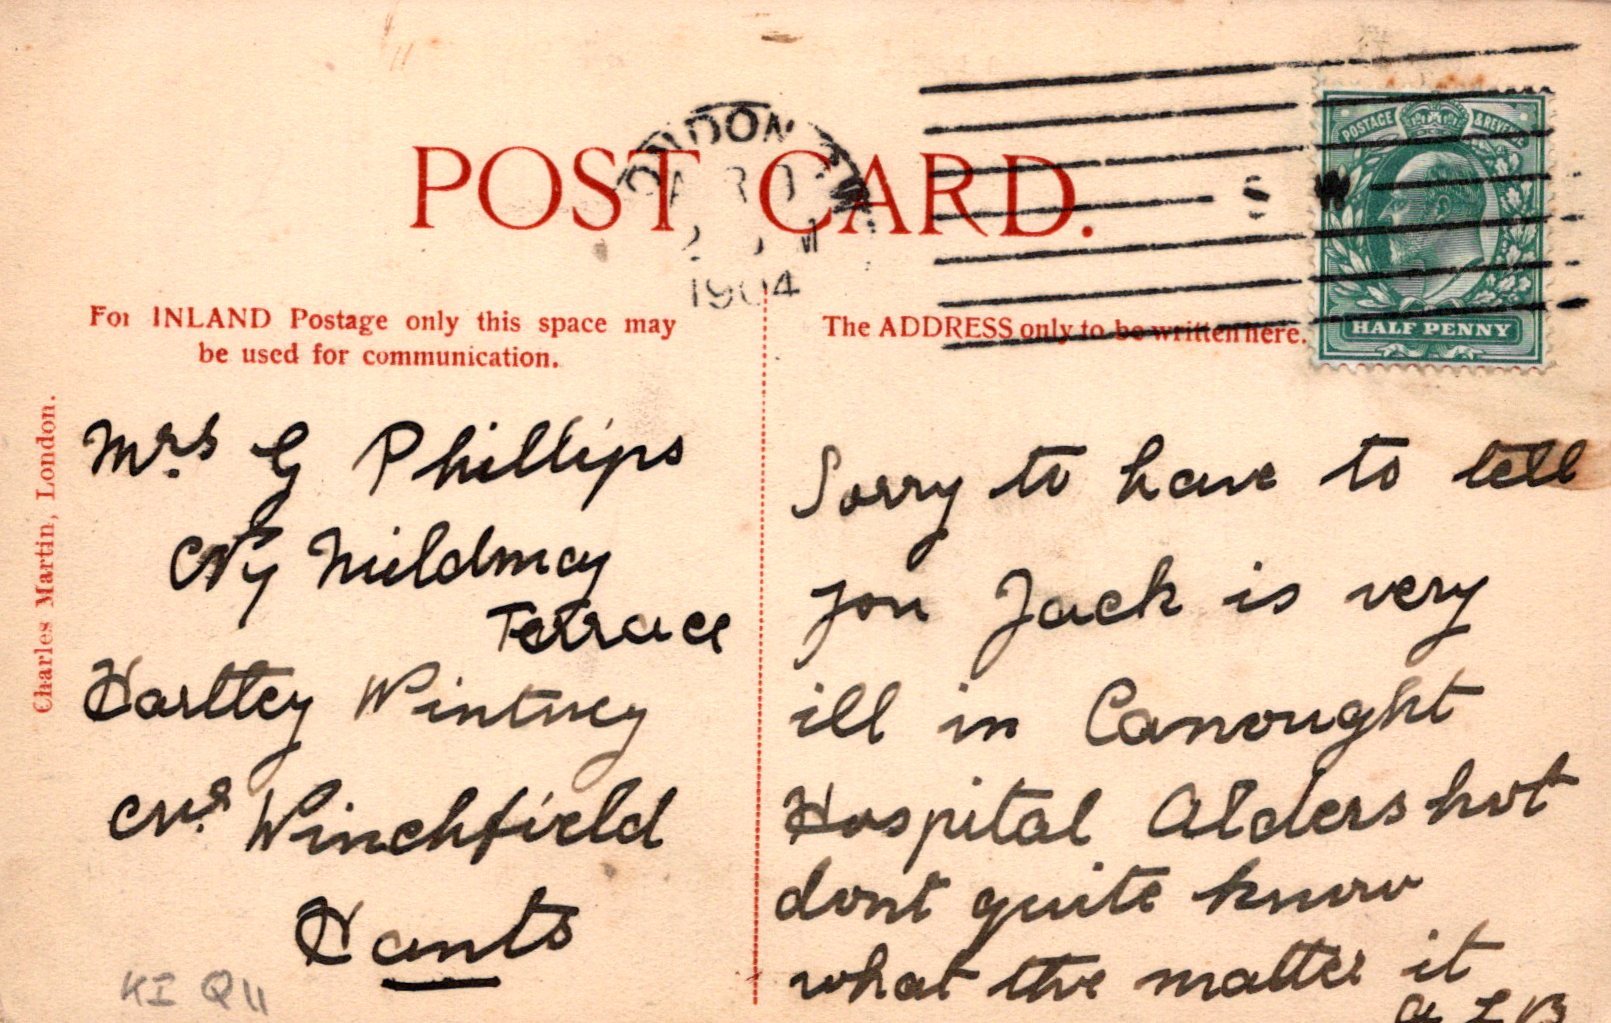 POST CARD.
LONDON
1904
POSTAGE & REVENUE
HALF PENNY
For INLAND Postage only this space may
be used for communication.
The ADDRESS only to be written here.
Charles Martin, London.
Mrs G Phillips
Mildmay
Terrace
Hartley Wintney
Winchfield
Hants
KI Q11
Sorry to have to tell
you Jack is very
ill in Canought
Hospital Aldershot
dont quite know
what the matter it